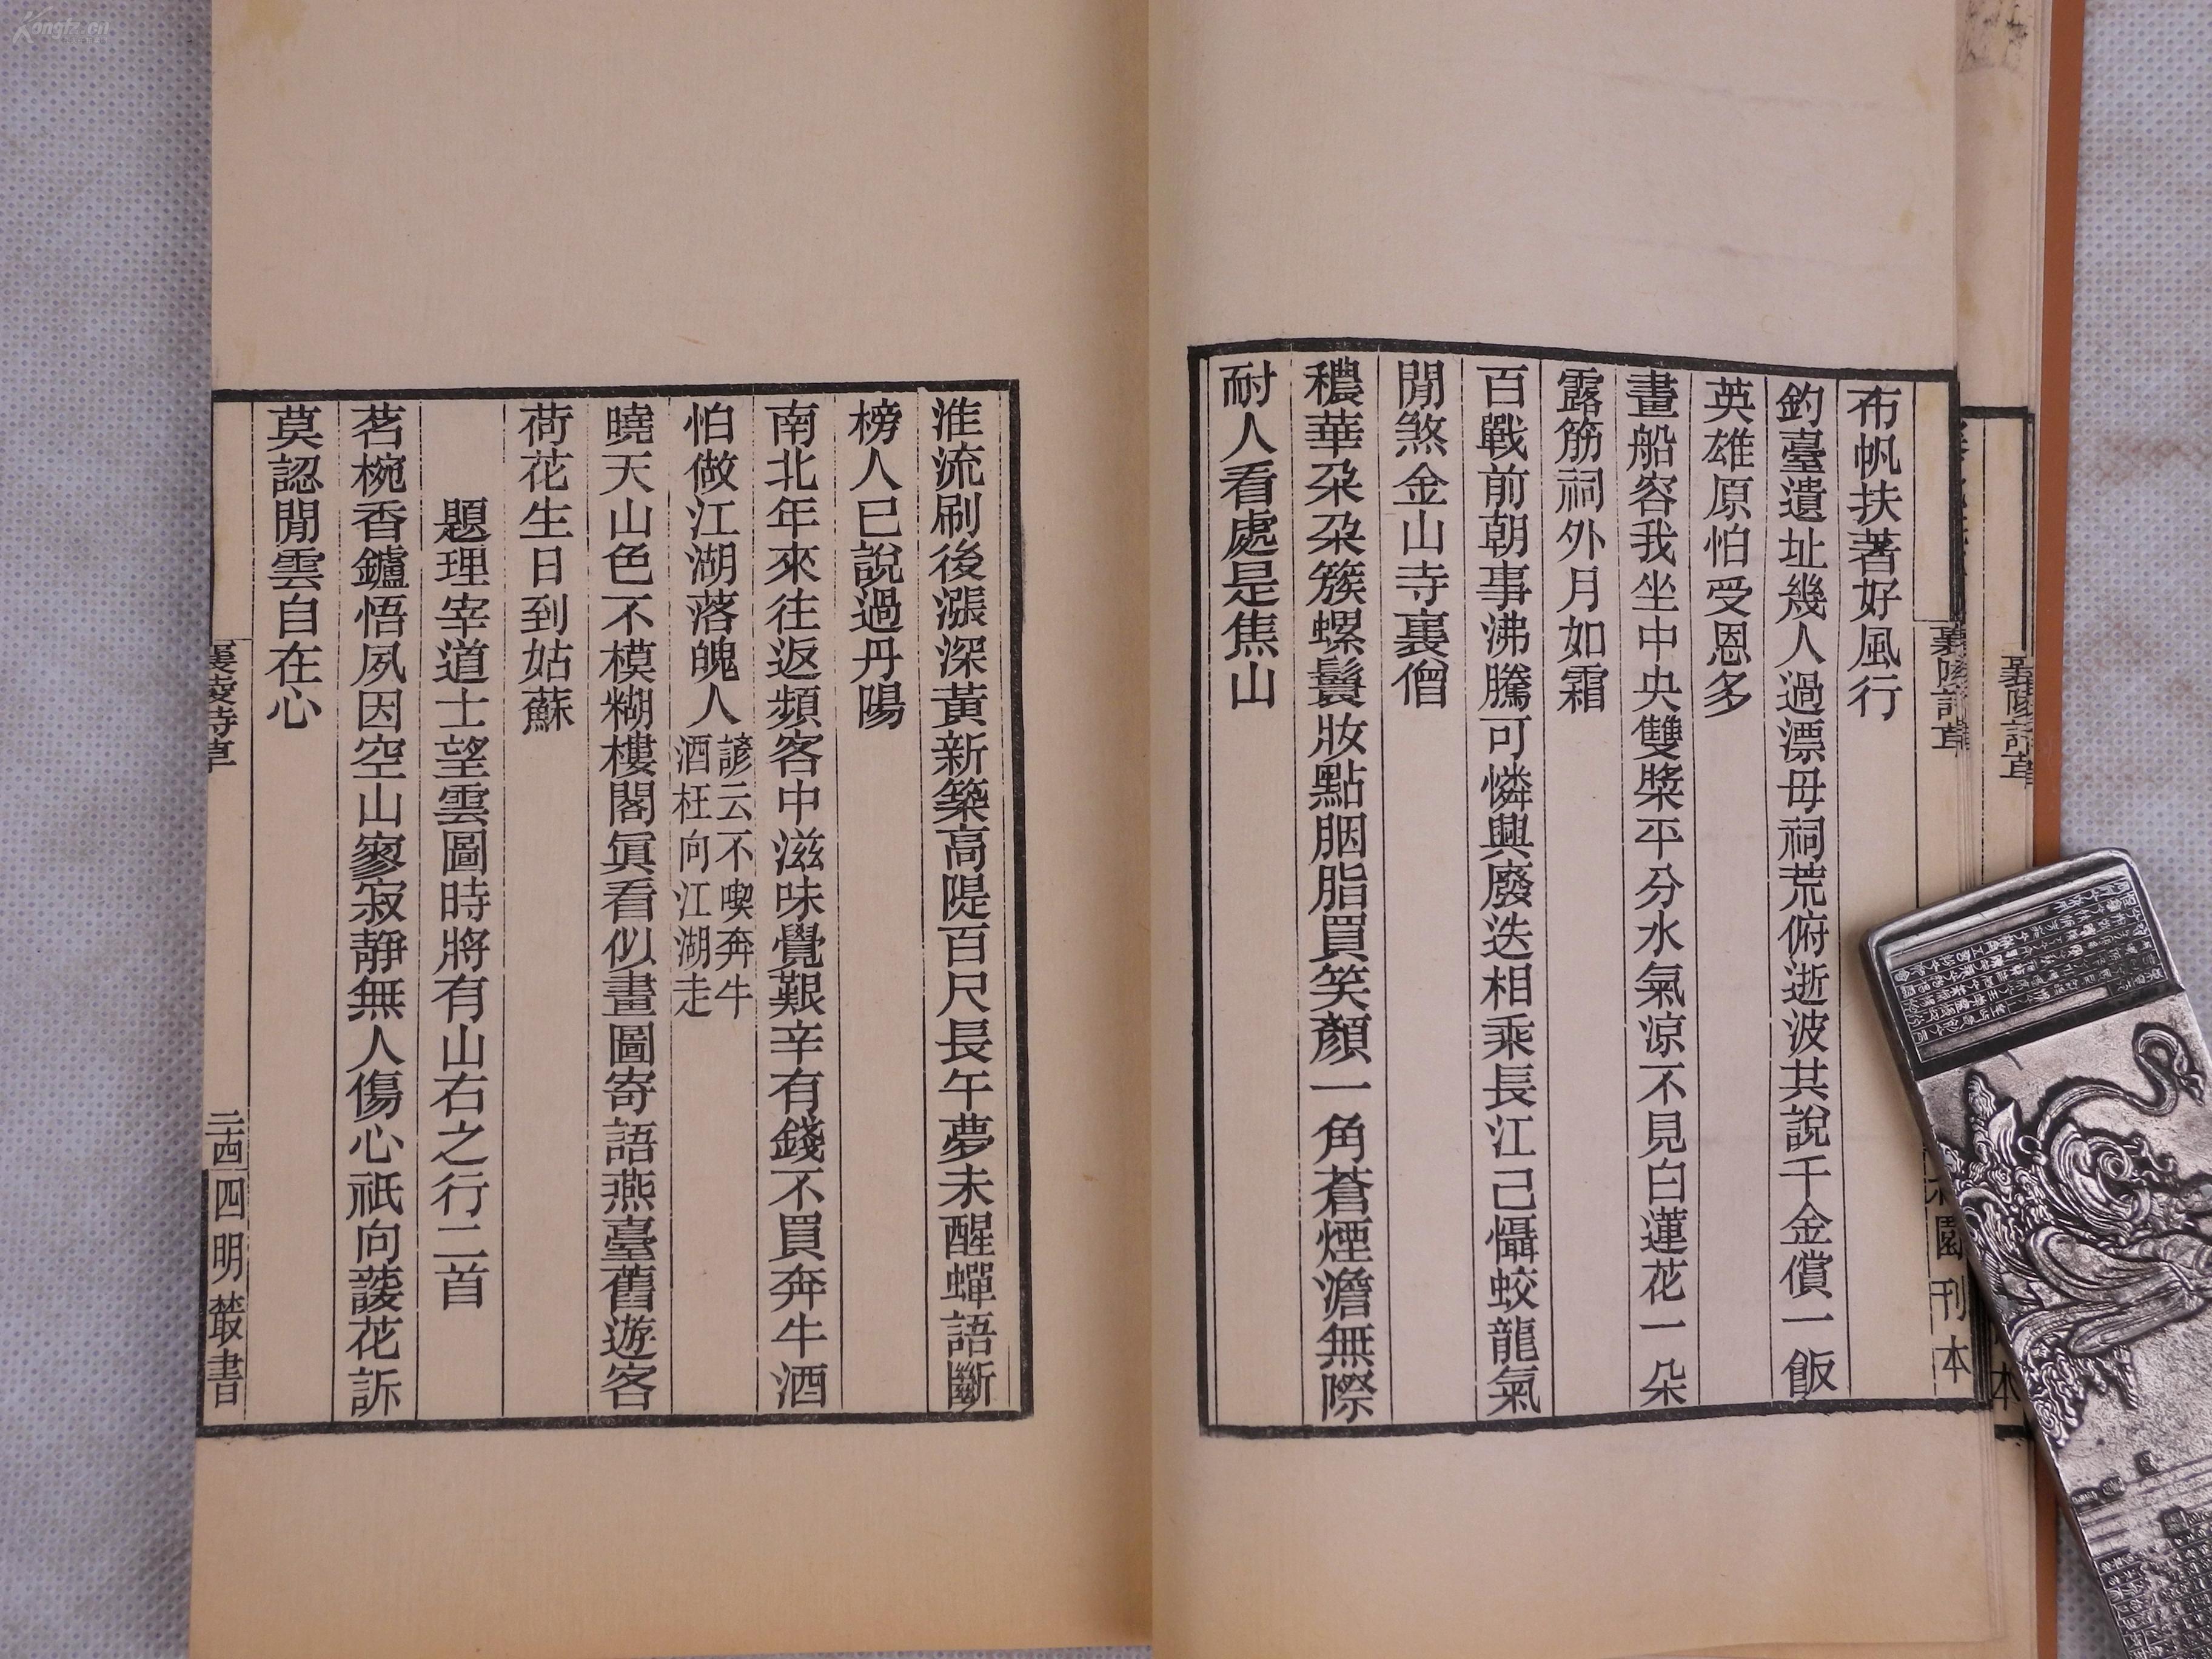 布帆扶著好風行
釣臺遺址幾人過漂母祠荒俯逝波其說千金償一飯
英雄原怕受恩多
畫船容我坐中央雙槳平分水氣涼不見白蓮花一朵
露筋祠外月如霜
百戰前朝事沸騰可憐興廢迭相乘長江己懾蛟龍氣
閒煞金山寺裏僧
穠華朶朶簇螺鬟妝點胭脂買笑顏一角蒼煙澹無際
耐人看處是焦山
淮流刷後漲深黃新築高隄百尺長午夢未醒蟬語斷
榜人已說過丹陽
南北年來往返頻客中滋味覺艱辛有錢不買奔牛酒
怕做江湖落魄人諺云不喫奔牛
酒枉向江湖走
曉天山色不模糊樓閣眞看似畫圖寄語燕臺舊遊客
荷花生日到姑蘇
題理宰道士望雲圖時將有山右之行二首
茗椀香鑪悟夙因空山寥寂靜無人傷心祇向菱花訴
莫認閒雲自在心
襄陵詩草
四明叢書
園刊本
Kongfz.cn